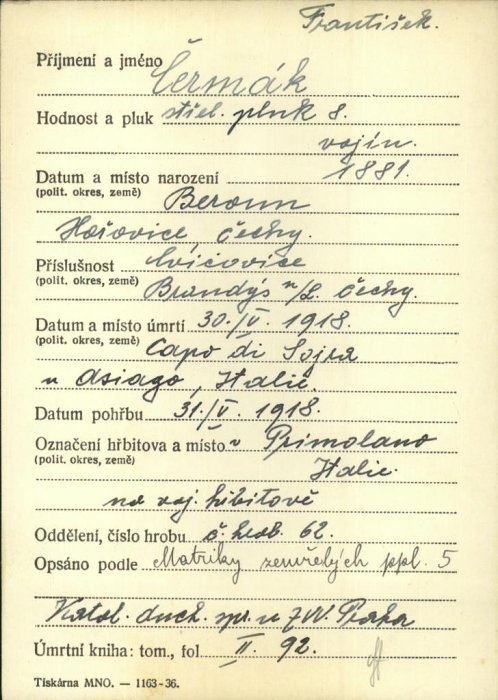 František.
Příjmení a jméno Čermák
Hodnost a pluk střel. pluk 8.
vojín.
Datum a místo narození 1881.
(polit. okres, země) Beroun
Hořovice, Čechy.
Příslušnost Svičovice
(polit. okres, země) Brandýs n/L. Čechy.
Datum a místo úmrtí 30./V. 1918.
(polit. okres, země) Capo di Sojra
u Asiago, Italie.
Datum pohřbu 31./V. 1918.
Označení hřbitova a místo v Primolano
(polit. okres, země) Italie.
na voj. hřbitově
Oddělení, číslo hrobu č. hrob. 62.
Opsáno podle Matriky zemřelých ppl. 5
Katol. duch. spr. u ZVV. Praha
Úmrtní kniha: tom., fol II. 92.
Tiskárna MNO. — 1163-36.